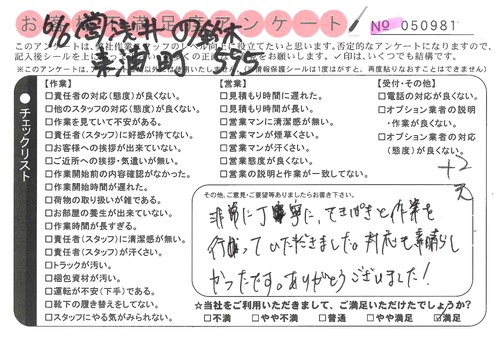 お客様満足度アンケート No 050981
このアンケートは、弊社作業スタッフのレベル向上に役立てたいと思います。否定的なアンケートになりますので、
※このアンケート
【作業】
□責任者の対応(態度)が良くない。
□他のスタッフの対応(態度)が良くない。
□作業を見ていて不安がある。
□責任者(スタッフ)に好感が持てない。
□お客様への挨拶が出来ていない。
□ご近所への挨拶・気遣いが無い。
□作業開始前の内容確認がなかった。
□作業開始時間が遅れた。
□荷物の取り扱いが雑である。
□お部屋の養生が出来ていない。
□作業時間が長すぎる。
□責任者(スタッフ)に清潔感が無い。
□責任者(スタッフ)が汗くさい。
□トラックが汚い。
□梱包資材が汚い。
□運転が不安(下手)である。
□靴下の履き替えをしてない。
□スタッフにやる気がみられない。
【営業】
□見積もり時間に遅れた。
□見積もり時間が長い。
□営業マンに清潔感が無い。
□営業マンが煙草くさい。
□営業マンが汗くさい。
□営業態度が良くない。
□営業の説明と作業が一致してない。
【受付・その他】
□電話の対応が良くない。
□オプション業者の説明
・作業が良くない。
□オプション業者の対応
(態度)が良くない。
チェックリスト
6/6 営 浅井の鈴木
595
+2
その他、ご意見・ご要望等ありましたらお書き下さい。
非常に丁寧に、てきぱきと作業を
行なっていただきました。対応も素晴らし
かったです。ありがとうございました!
☆当社をご利用いただきまして、ご満足いただけたでしょうか?
□不満 □やや不満 □普通 □やや満足 ☑満足